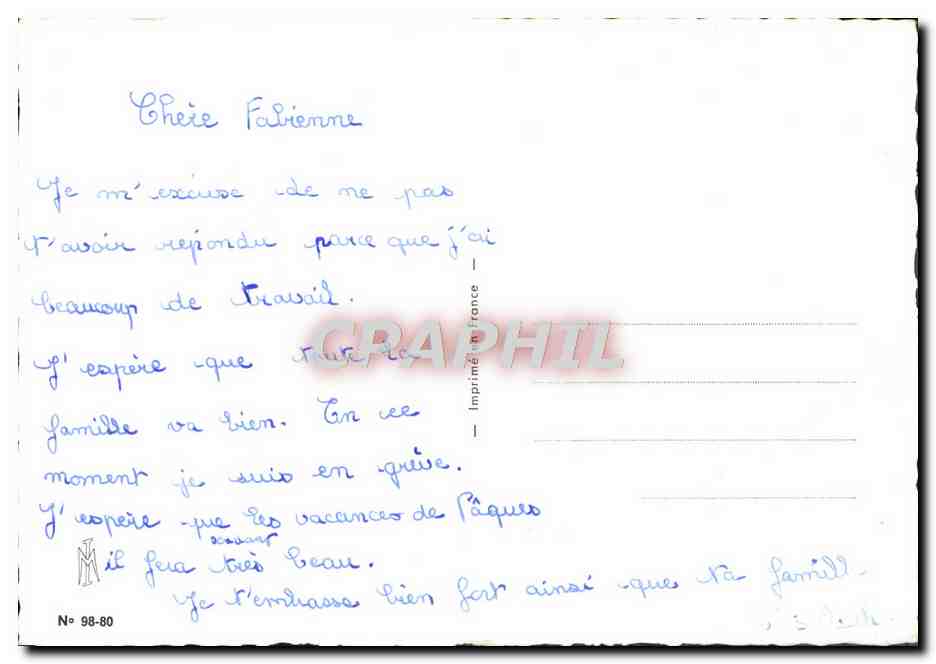 Chère Fabienne
Je m'excuse de ne pas
t'avoir repondu parce que j'ai
beaucoup de travail.
J'espère que toute la
famille va bien. En ce
moment je suis en grève.
J'espère que les vacances de Pâques
il fera très beau.
Je t'embrasse bien fort ainsi que ta famill
— Imprimé en France —
CPAPHIL
N° 98-80